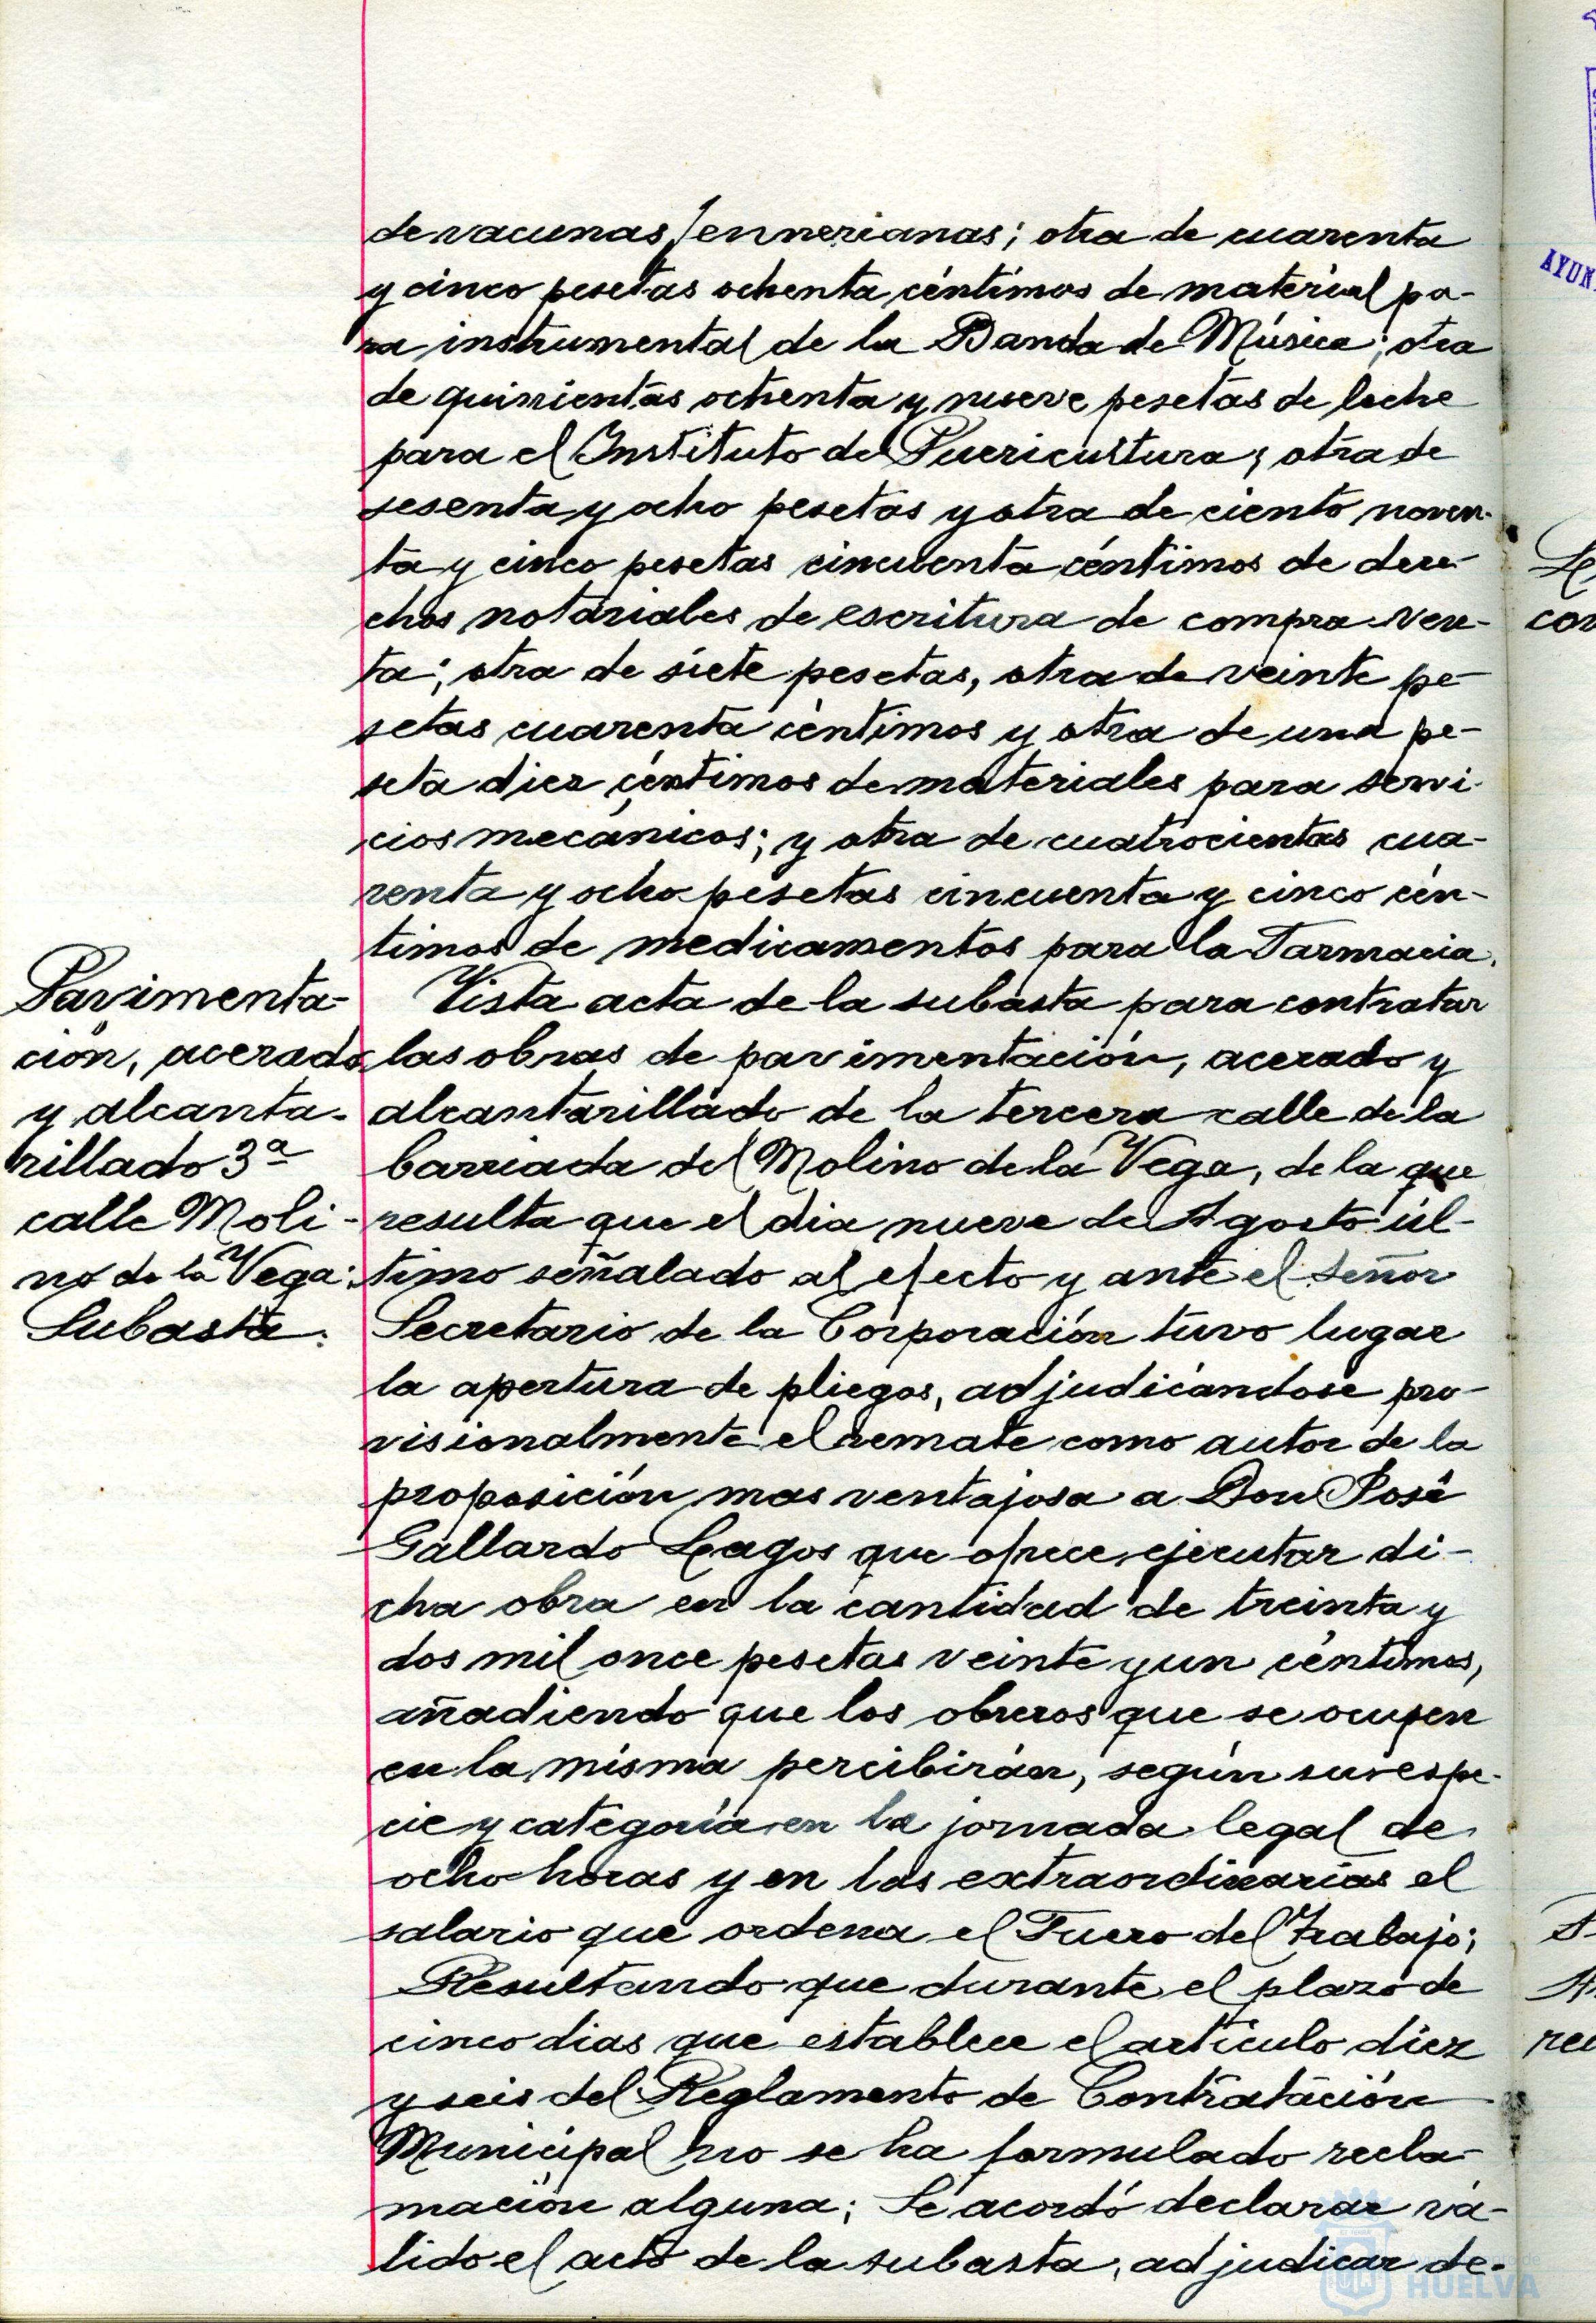 de vacunas Jennerianas; otra de cuarenta
y cinco pesetas ochenta céntimos de material pa-
ra instrumental de la Banda de Música; otra
de quinientas ochenta y nueve pesetas de leche
para el Instituto de Puericultura; otra de
sesenta y ocho pesetas y otra de ciento noven-
ta y cinco pesetas cincuenta céntimos de dere-
chos notariales de escritura de compra-ven-
ta; otra de siete pesetas, otra de veinte pe-
setas cuarenta céntimos y otra de una pe-
seta diez céntimos de materiales para servi-
cios mecánicos; y otra de cuatrocientas cua-
renta y ocho pesetas cincuenta y cinco cén-
timos de medicamentos para la Farmacia.
Pavimenta-
ción, acerado
y alcanta-
rillado 3ª
calle Moli-
no de la Vega:
Subasta.
Vista acta de la subasta para contratar
las obras de pavimentación, acerado y
alcantarillado de la tercera calle de la
barriada del Molino de la Vega, de la que
resulta que el dia nueve de Agosto úl-
timo señalado al efecto y ante el Señor
Secretario de la Corporación tuvo lugar
la apertura de pliegos, adjudicándose pro-
visionalmente el remate como autor de la
proposición mas ventajosa a Don José
Gallardo Lagos que ofrece ejecutar di-
cha obra en la cantidad de treinta y
dos mil once pesetas veinte y un céntimos,
añadiendo que los obreros que se ocupen
en la misma percibirán, según su espe-
cie y categoría en la jornada legal de
ocho horas y en las extraordinarias el
salario que ordena el Fuero del Trabajo;
Resultando que durante el plazo de
cinco dias que establece el artículo diez
y seis del Reglamento de Contratación
Municipal no se ha formulado recla-
mación alguna; Se acordó declarar vá-
lido el acto de la subasta, adjudicar de-
AYUN
HUELVA